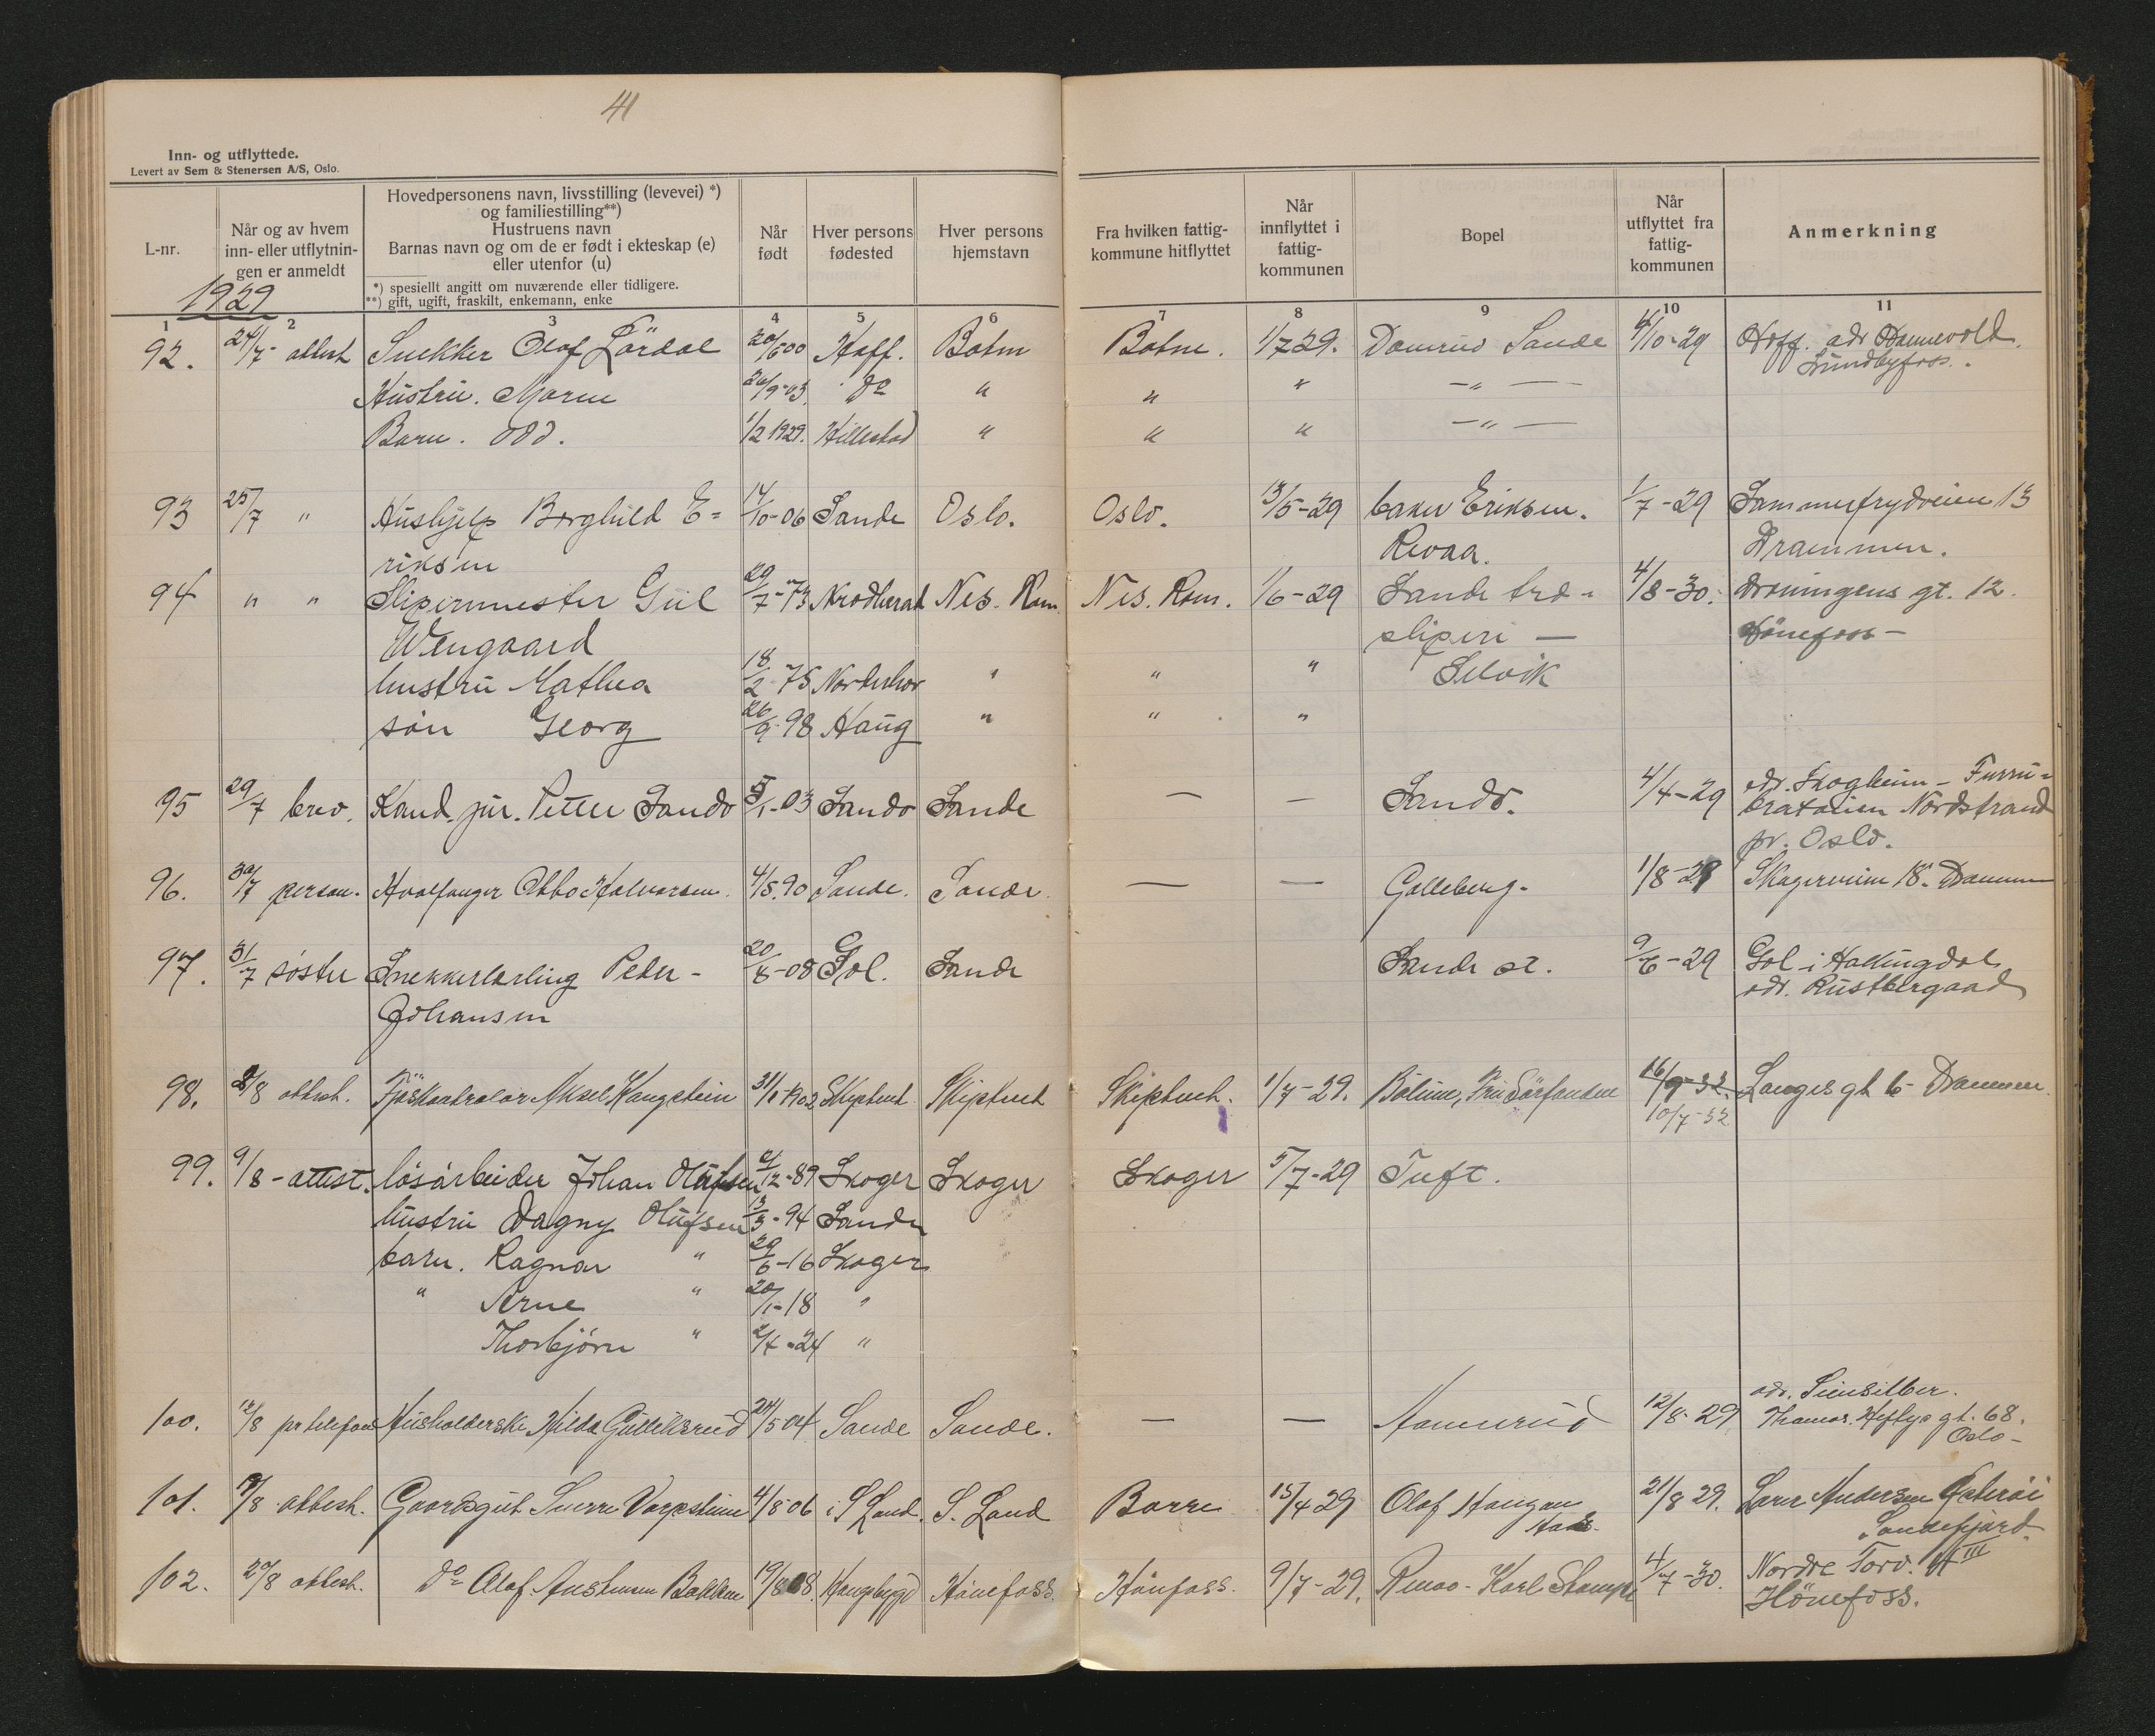 41
Inn- og utflyttede.
Levert av Sem & Stenersen A/S, Oslo.
L-nr.
Når og av hvem
inn- eller utflytnin-
gen er anmeldt
Hovedpersonens navn, livsstilling (levevei) *)
og familiestilling**)
Hustruens navn
Barnas navn og om de er født i ekteskap (e)
eller utenfor (u)
*) spesiellt angitt om nuværende eller tidligere.
**) gift, ugift, fraskilt, enkemann, enke
Når
født
Hver persons
fødested
Hver persons
hjemstavn
Fra hvilken fattig-
kommune hitflyttet
Når
innflyttet i
fattig-
kommunen
Bopel
Når
utflyttet fra
fattig-
kommunen
Anmerkning
1929
1 2 3 4 5 6 7 8 9 10 11
92. 24/7 attest Olaf 20/500 Hoff. Botne Botne. 1/7 29. Sande /10-29 Hoff. adr
Hustru. Maren 26/9-03. do " " " -"-
Barn. Odd. 1/2 1929. Hillestad " " " -"-
93 25/7 " Hushjelp Borghild E= 14/10-06 Sande Oslo. Oslo. 13/5-29 Eriksen. 1/7-29 Sommerfrydveien 13
riksen Revaa. Drammen.
94 " " Slipermester Gul 29/7-73 Krødherad Nes. Rom. Nes. Rom. 1/6-29 Sande tre- 4/8-30. Droningens gt. 12.
Wengaard sliperi — Hönefoss —
hustru Mathea 18/2-75 Norderhov " " " Selvik
sön Georg 26/9-98 Haug " " "
95 29/7 brev. Kand. jur. Petter Sando 5/1-03 Sande Sande — — Sande. 4/4-29 adr. Skogheim - Furru=
Nordstrand
pr. Oslo.
96. 30/7 person. Hvalfanger Halvorsen. 4/5.90 Sande. Sande. — — Galleberg. 1/8-29 Skogerveien 18. Drammen
97. 31/7 söster Snekkerlærling Peder - 20/8-08 Gol. Sande Sande st. 9/6-29 Gol i Hallingdal
Johansen adr. Rustbergaard
98. 2/8 attest. Fjöskontrolör Aksel Haugstein 31/1-1902 Skiptvet Skiptvet Skiptvet. 1/7-29. 16/9-32. Langes gt 6- Drammen.
10/7-32
99. 9/8-attest. lösarbeider Johan Olufsen /12-89 Skoger Skoger Skoger 5/7-29 Tuft.
hustru Dagny Olufsen /3-94 Sande
barn. Ragnar " 29/6-16 Skoger
" Arne " 20/1-18 "
Thorbjörn " 2/4-24 "
100. 12/8 pr telefon Husholderske Hilda Gulliksrud 24/5 04 Sande Sande. — — 12/8-29 adr.
Thomas. Heftyes gt. 68.
Oslo-
101. 19/8 attest. Gaardsgut Sverre 4/8 06 S. Land. S. Land Borre 15/4 29 Olaf Haugan 21/8 29. Andersen
Sandefjord
102. 20/8 attest. do Olaf Austensen Bakken 19/8 08. Haugsbygd Hönefoss. Hönefoss. 9/7-29. Revaa - Karl 4/7-30. Nordre Torv. III
Hönefoss.